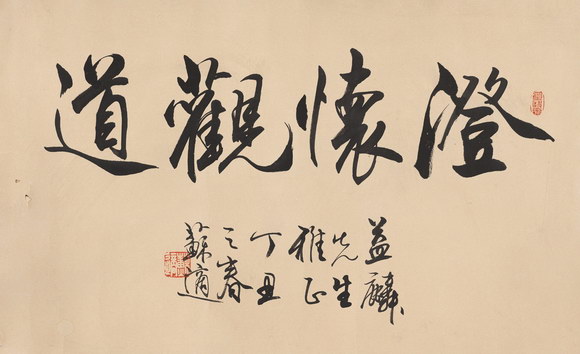 澄懷觀道
益麟
先生
雅正
丁丑
之春
蘇適